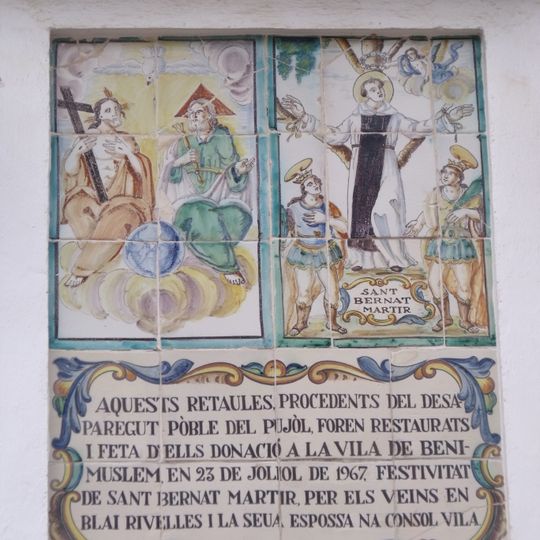 SANT
BERNAT
MARTIR
AQUESTS RETAULES, PROCEDENTS DEL DESA-
PAREGUT PÒBLE DEL PUJÒL, FOREN RESTAURATS
I FETA D'ELLS DONACIÓ A LA VILA DE BENI-
MUSLEM, EN 23 DE JOLIOL DE 1967, FESTIVITAT
DE SANT BERNAT MARTIR, PER ELS VEINS EN
BLAI RIVELLES I LA SEUA ESPOSSA NA CONSOL VILA